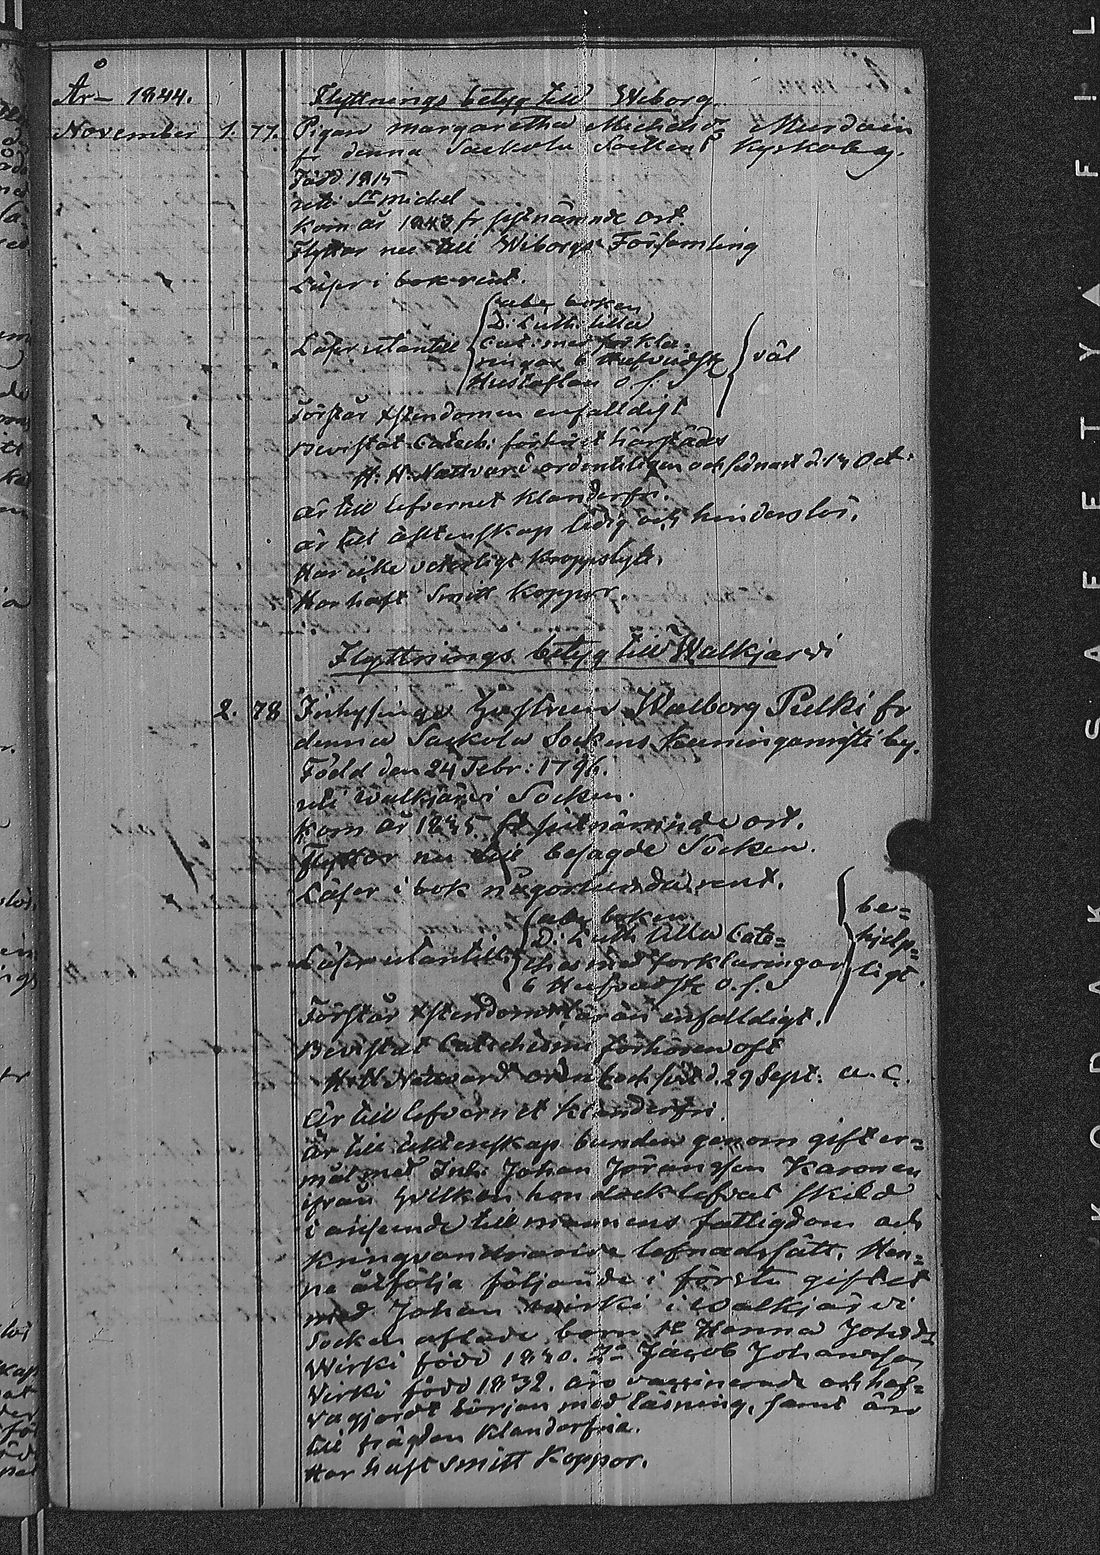 År 1844.
Flyttnings betyg till Wiborg
November 1. 77. Pigan Margaretha Michelsdr
fr denna Sackola Sockens Kyrkoby.
Född 1815
uti St Michel
Kom år 1843 fr sistnämnde ort
Flyttar nu till Wiborgs Församling
Läser i bok rent.
Läser utantill
abc boken
D: Luth. lilla
Cat: med förkla-
ringar 6 Hufvudst
Hustaflan o. s. v
väl
Förstår Xstendomen enfalldigt
Bevistat Catech: förhöret härstädes
H. H. Nattvard ordenteligen och sednast d. 13 Oct.
är till lefvernet klanderfri.
är till äktenskap ledig och hinderslös.
Har icke veterligt kroppslyte.
Har haft Smitt koppor.
Flyttnings betyg till Walkjärvi
2. 78 Inhysinge Hustrun Walborg Pulki fr
denna Sackola Sockens by.
Född den 24 Febr: 1796.
uti Walkjärvi Socken.
Kom år 1835 fr sistnämnde ort.
Flyttar nu till besagde Socken.
Läser i bok någorlunda rent.
Läser utantill
abc boken
D: Luth. lilla Cate=
ches med förklaringar
6 Hufvudst o. s. v
be=
hjelp=
ligt.
Förstår Xstendoms läran enfalldigt.
Bevistat Catechismi förhören oft
H. H. Nattvard och sist d. 29 Sept. a. c.
Är till lefvernet klanderfri
är till äktenskap bunden genom gifter=
mål med Inh: Johan Jöransson Karonen
ifrån hvilken hon dock lefvat skild
i anseende till mannens fattigdom och
kringvandrande lefnadssätt. Hen=
ne åtfölja följande i första giftet
med Johan Wirki i Walkjärvi
Socken aflade barn 1o Hanna Johsdr
Wirki född 1830. 2o Jacob Johansson
Virki född 1832. äro vaccinerade och haf=
va gjordt början med läsning, samt äro
till frägden klanderfria.
Har haft Smitt Koppor.
KODAK SAFETY FIL